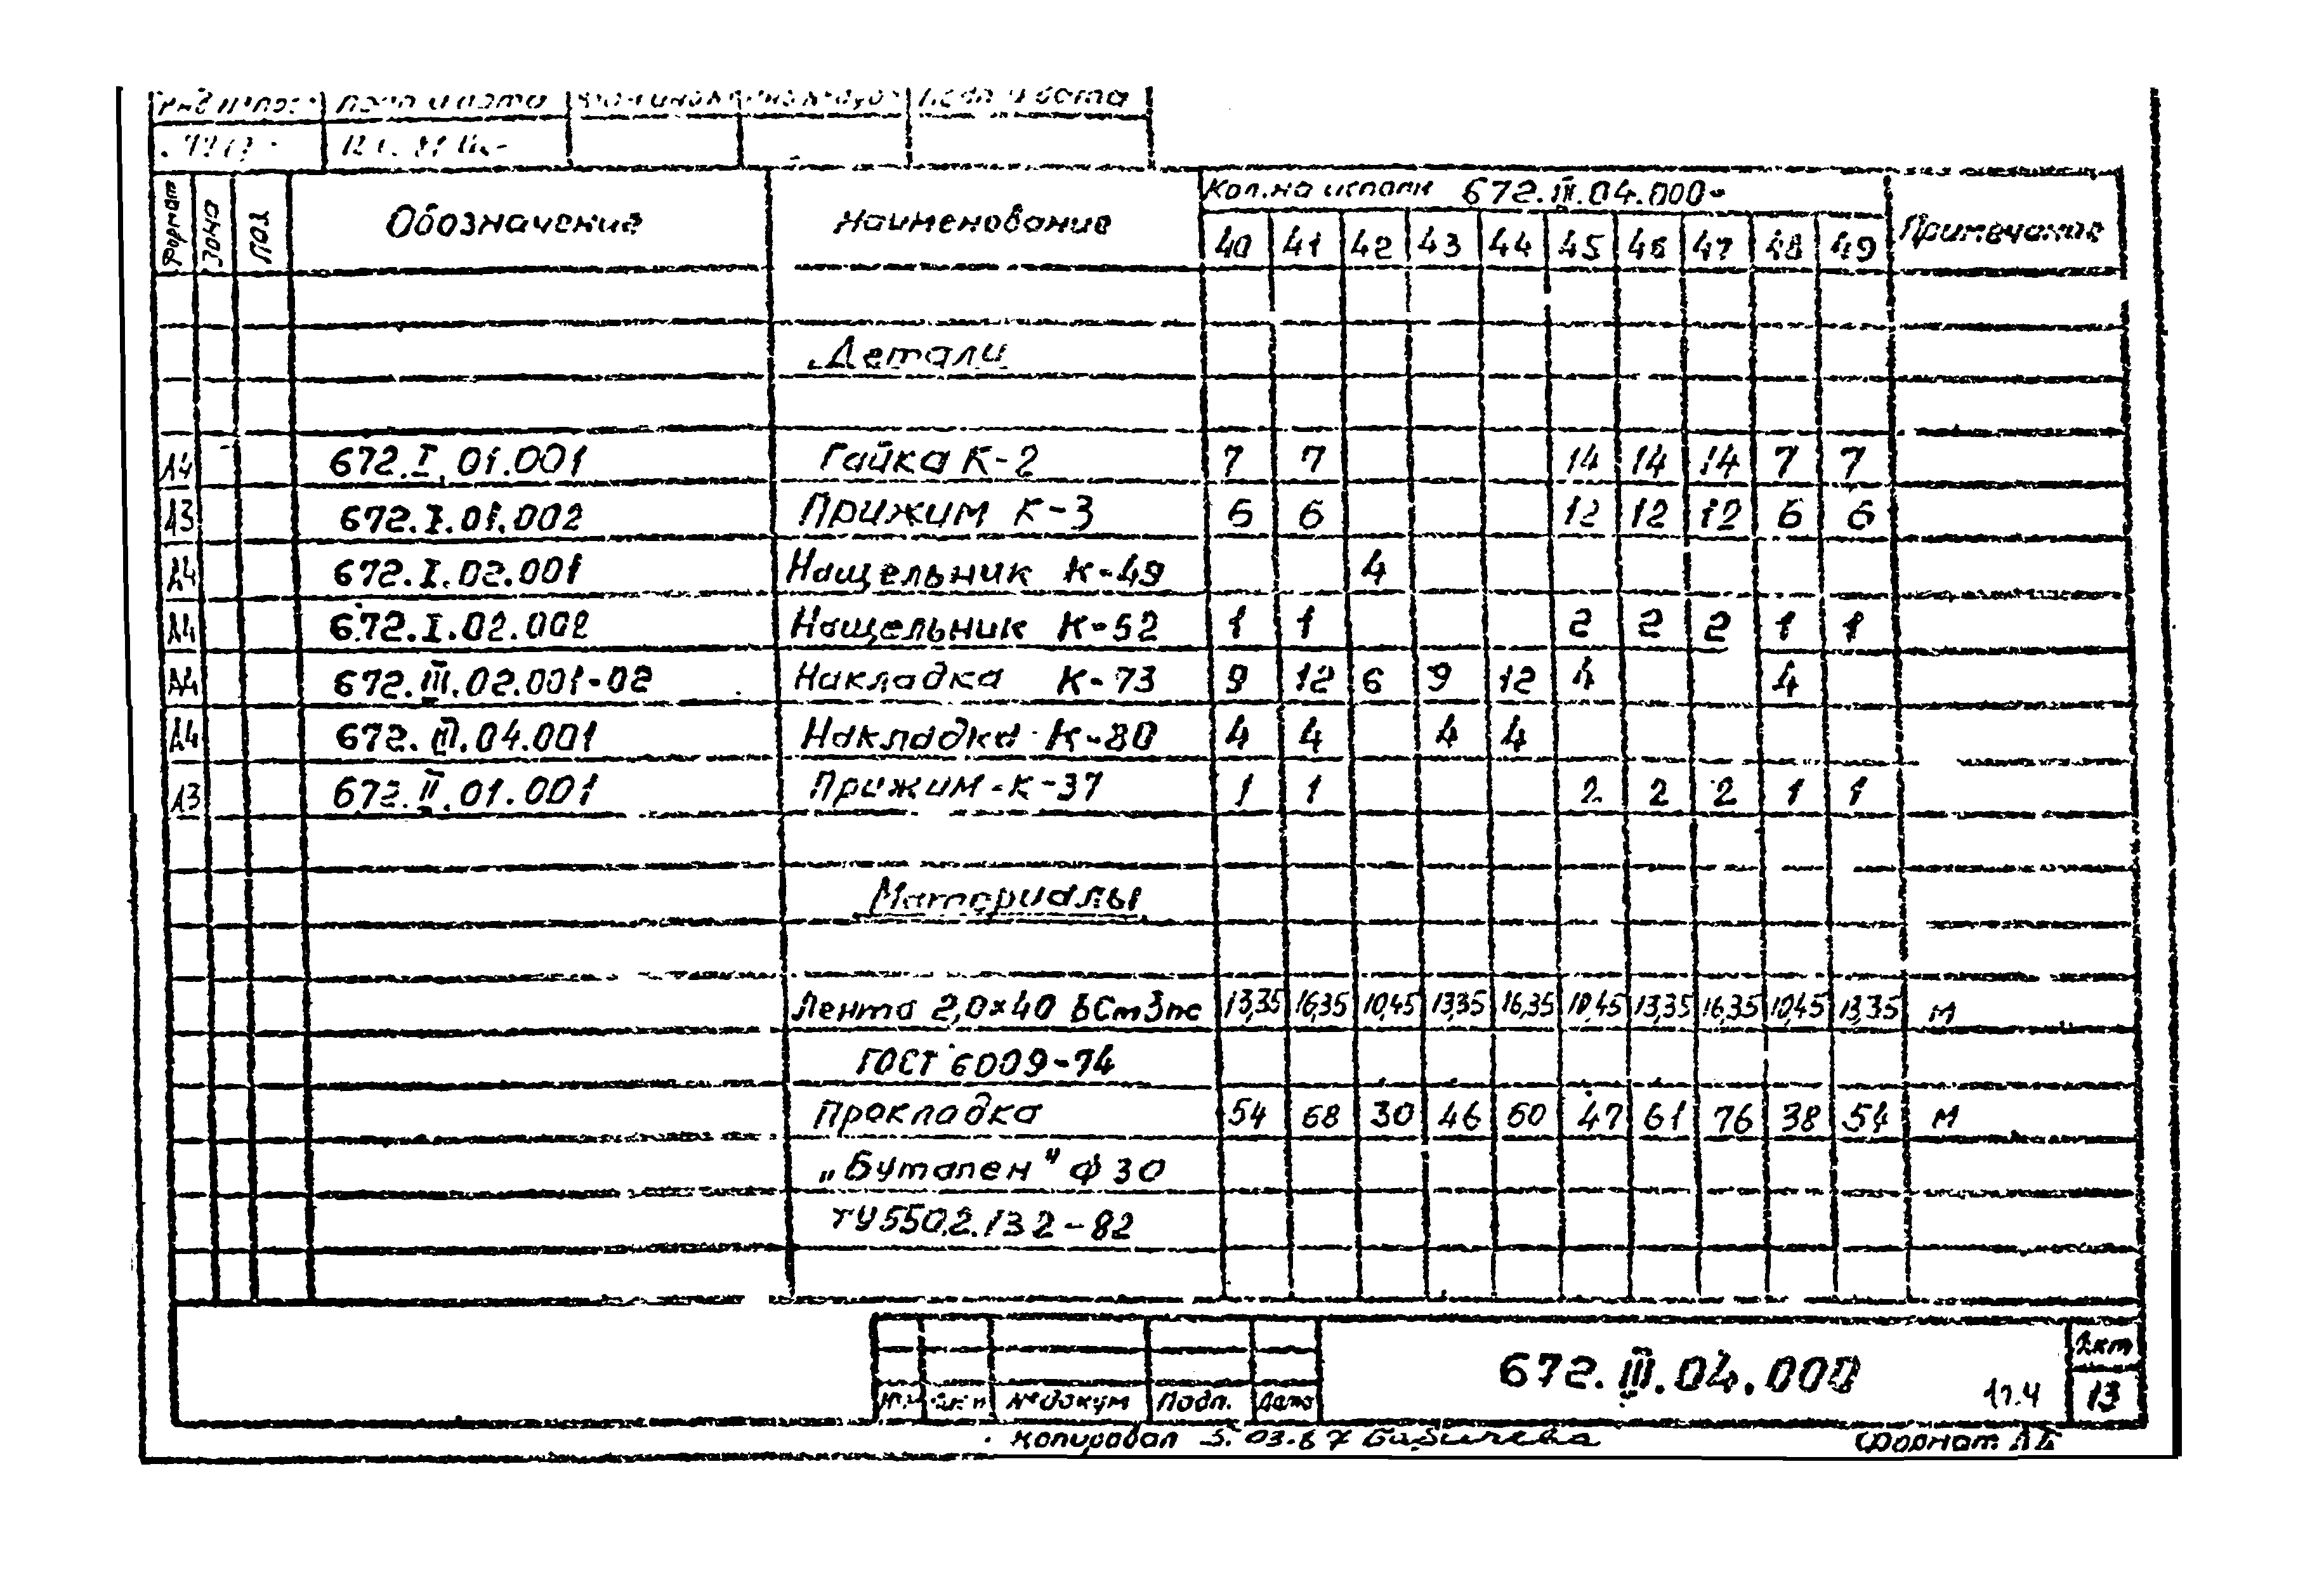 подп и дата подп и дата
Кол. на исполн 672.III.04.000-
Формат Зона Поз Обозначение Наименование 40 41 42 43 44 45 46 47 48 49 Примечание
Детали
А4 672.I.01.001 Гайка К-2 7 7 14 14 14 7 7
А3 672.I.01.002 Прижим К-3 6 6 12 12 12 6 6
А4 672.I.02.001 Нащельник К-49 4
А4 672.I.02.002 Нащельник К-52 1 1 2 2 2 1 1
А4 672.III.02.001-02 Накладка К-73 9 12 6 9 12 4 4
А4 672.III.04.001 Накладка К-80 4 4 4 4
А3 672.II.01.001 Прижим-К-37 1 1 2 2 2 1 1
Материалы
Лента 2,0×40 ВСт3пс 13,35 16,35 10,45 13,35 16,35 10,45 13,35 16,35 10,45 13,35 м
ГОСТ 6009-74
Прокладка 54 68 30 46 60 47 61 76 38 54 м
„Бутапен" ф 30
ТУ 550.2.132-82
672.III.04.000
№ докум Подп. Дата 13
Копировал 5.03.87
Формат